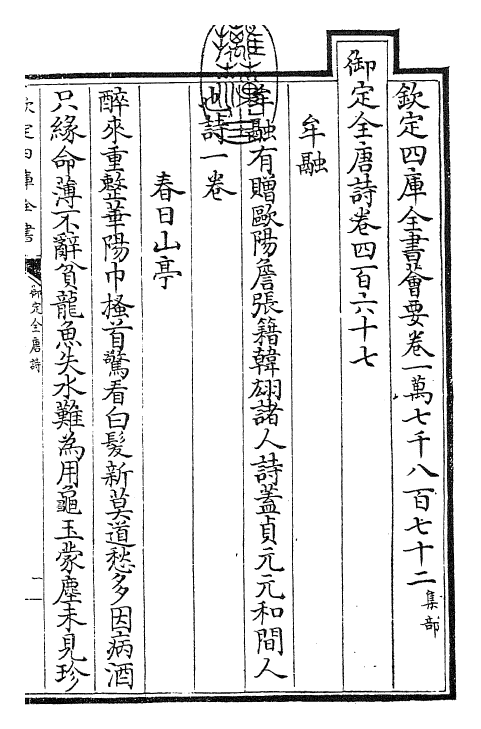 欽定四庫全書薈要卷一萬七千八百七十二 集部
御定全唐詩卷四百六十七
牟融
牟融有贈歐陽詹張籍韓翃諸人詩蓋貞元元和間人
詩一卷
春日山亭
醉來重整華陽巾搔首驚看白髮新莫道愁多因病酒
只緣命薄不辭貧龍魚失水難為用龜玉蒙塵未見珍
欽定四庫全書
御定全唐詩
一